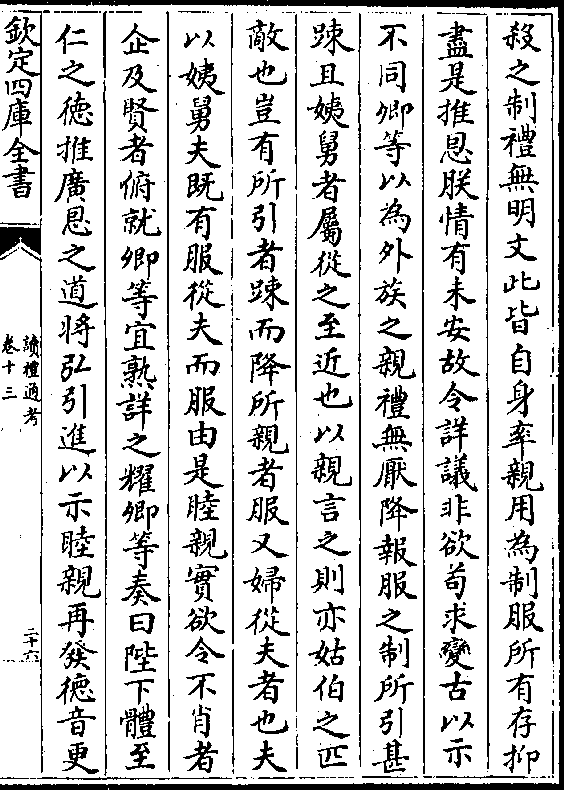 殺之制禮無明文此皆自身率親用為制服所有存抑
盡是推恩朕情有未安故令詳議非欲苟求變古以示
不同卿等以為外族之親禮無厭降報服之制所引甚
踈且姨舅者屬從之至近也以親言之則亦姑伯之匹
敵也豈有所引者踈而降所親者服又婦從夫者也夫
以姨舅夫既有服從夫而服由是睦親實欲令不肖者
企及賢者俯就卿等宜熟詳之耀卿等奏曰陛下體至
仁之徳推廣恩之道將弘引進以示睦親再發徳音更
欽定四庫全書
讀禮通考
卷十三
二十六